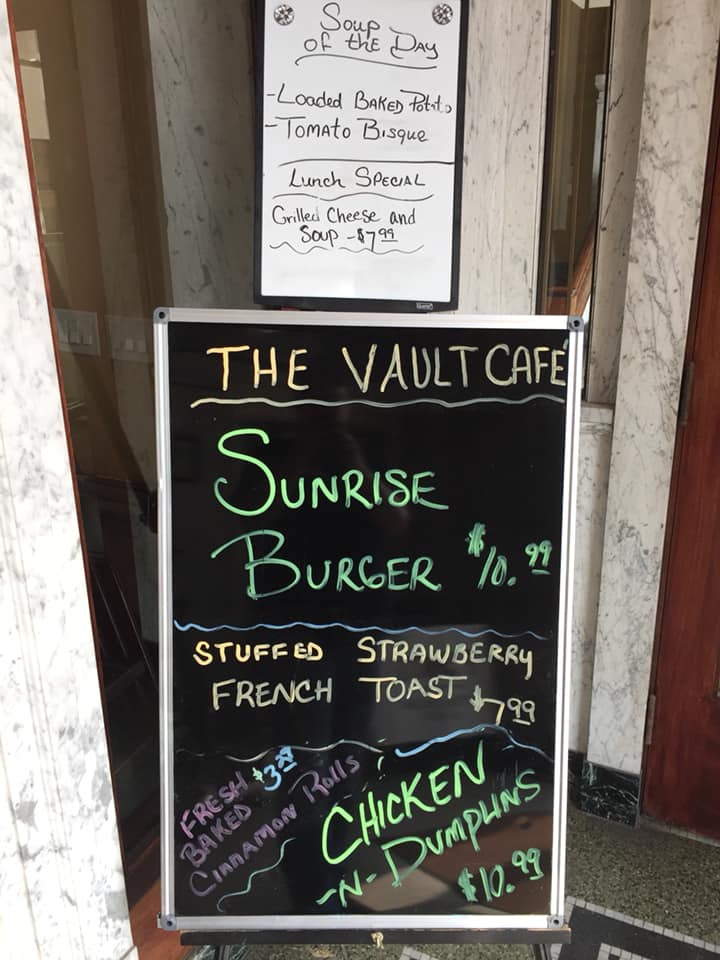 Soup
of the Day
-Loaded Baked Potato
-Tomato Bisque
Lunch Special
Grilled Cheese and
Soup -$7.99
THE VAULT CAFÉ
SUNRISE
BURGER $10.99
STUFFED STRAWBERRY
FRENCH TOAST $7.99
FRESH
BAKED
Cinnamon Rolls
CHICKEN
-N- DUMPLINS
$10.99